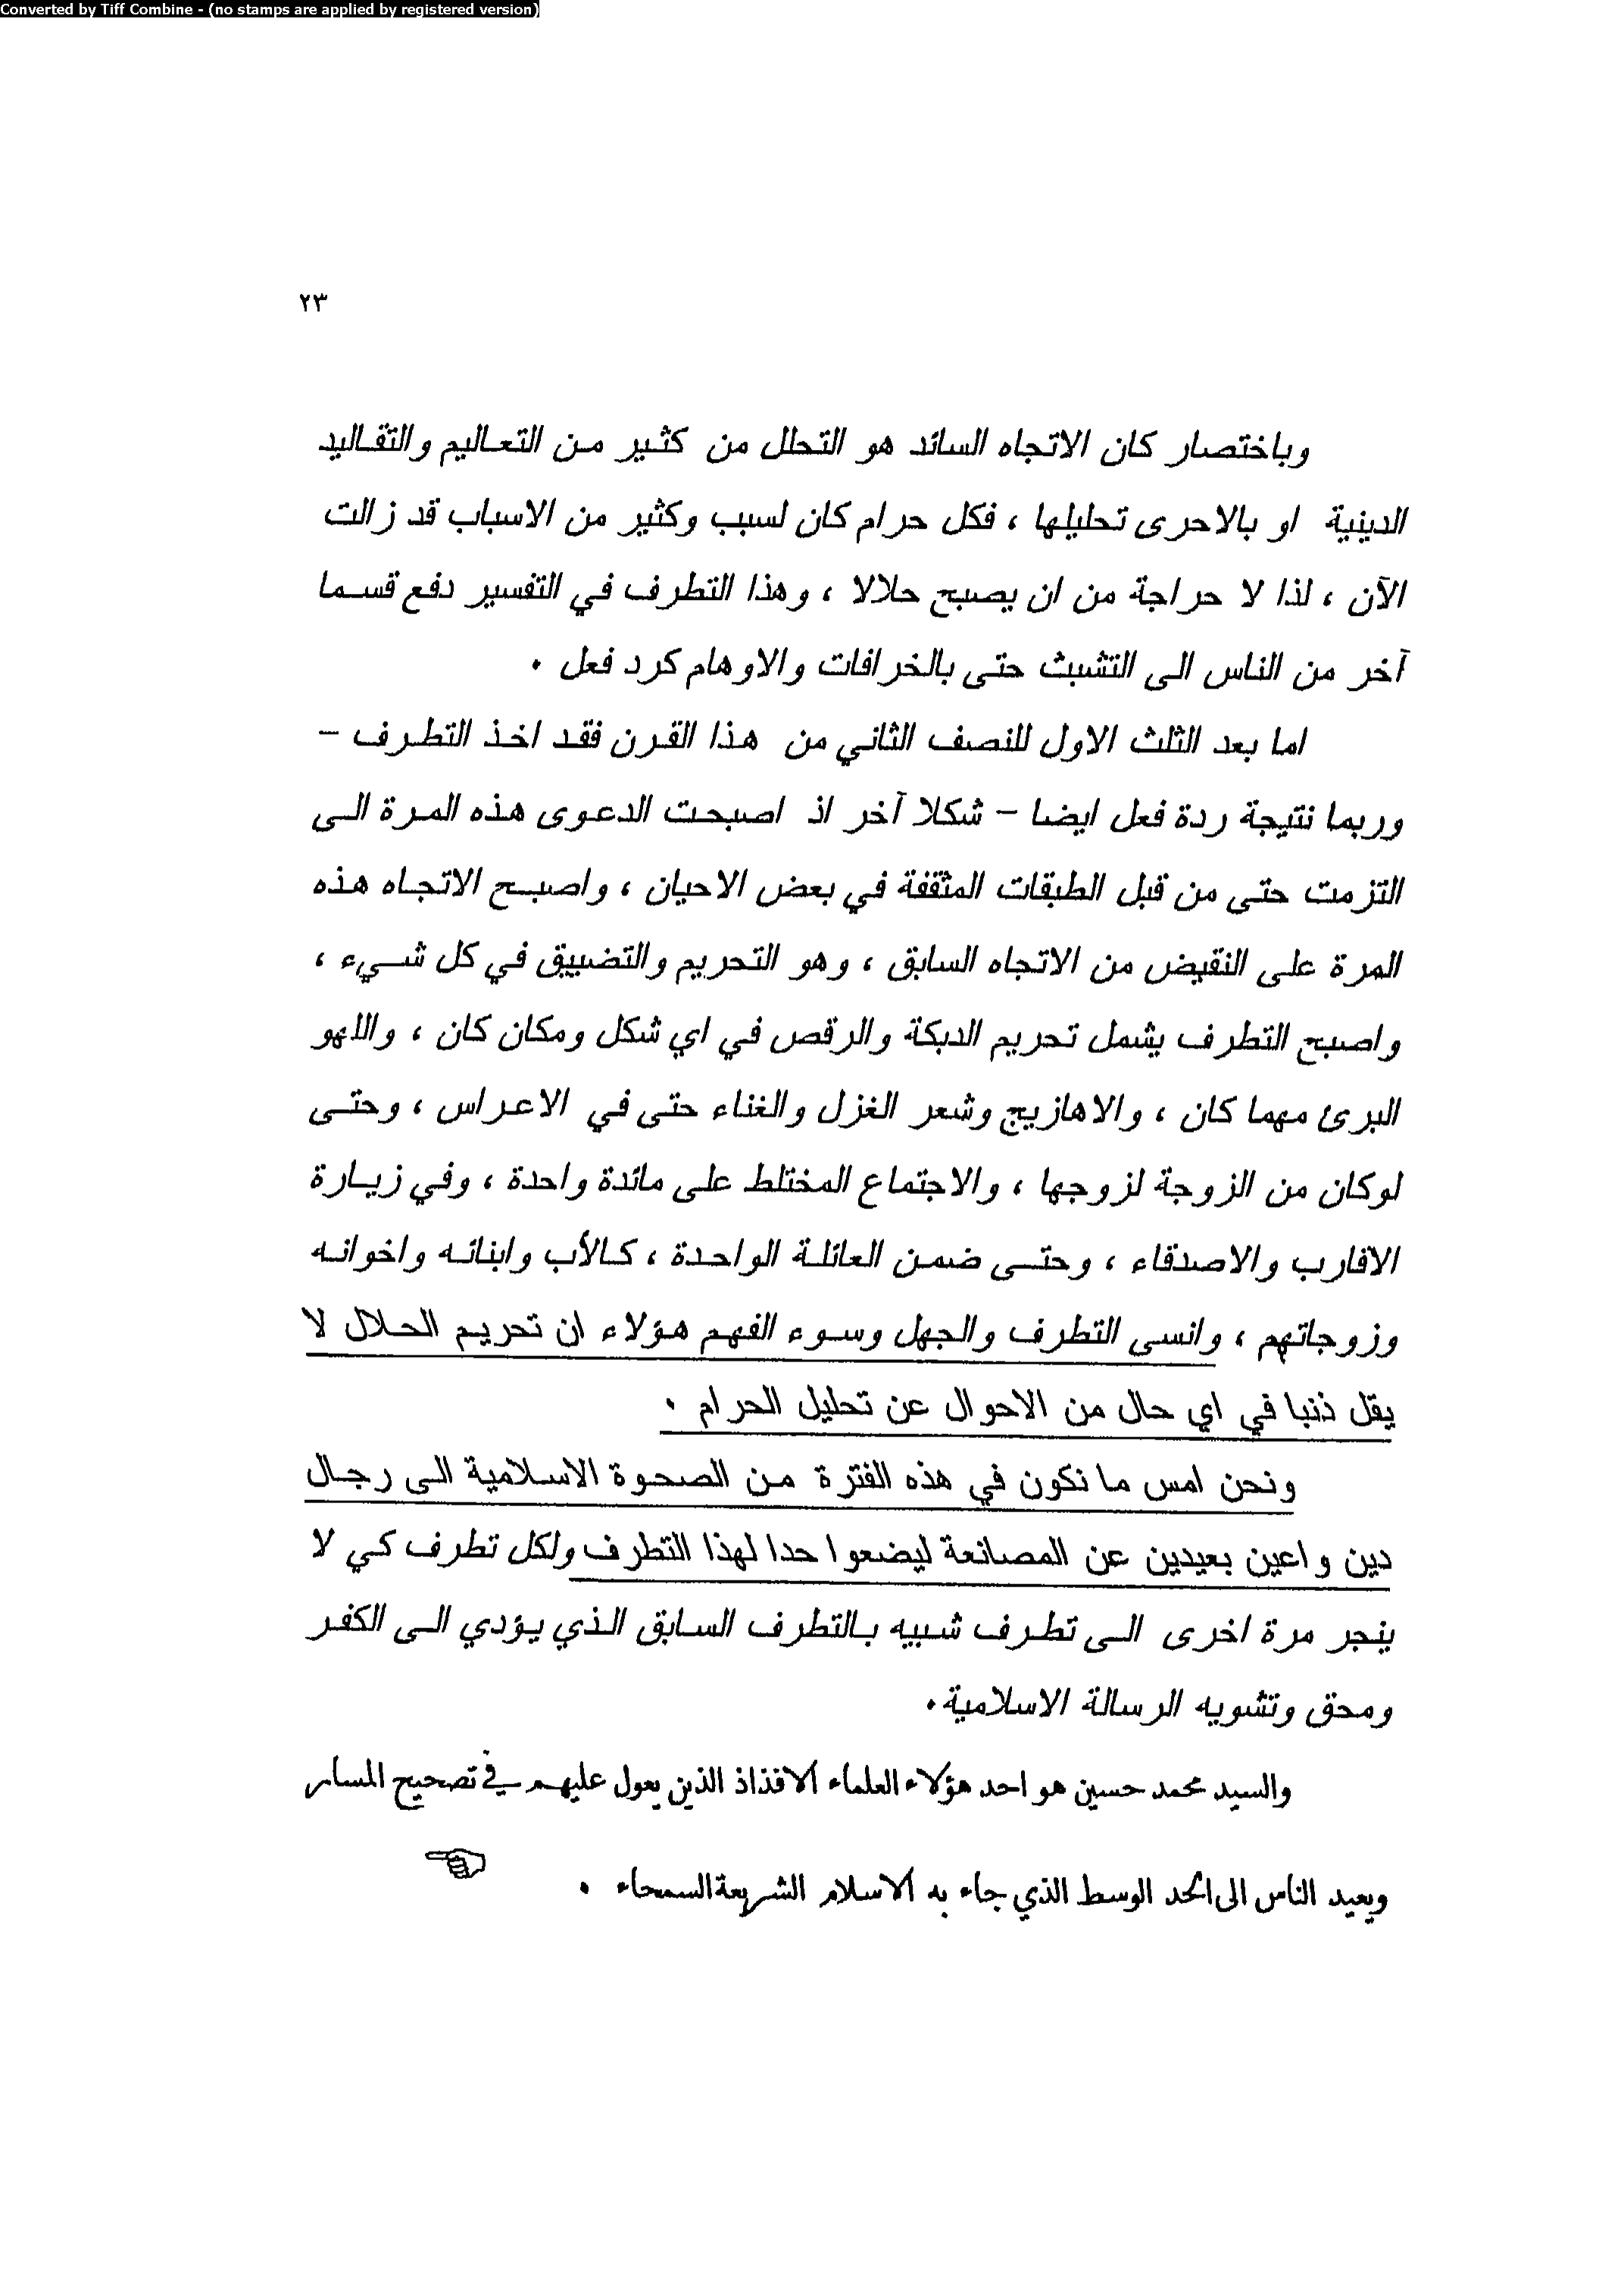 Converted by Tiff Combine - (no stamps are applied by registered version)
٢٣
وباختصار كان الاتجاه السائد هو التحلل من كثير من التعاليم والتقاليد
الدينية او بالاحرى تحليلها ، فكل حرام كان لسبب وكثير من الاسباب قد زالت
الآن ، لذا لا حراجة من ان يصبح حلالا ، وهذا التطرف في التفسير دفع قسما
آخر من الناس الى التشبث حتى بالخرافات والاوهام كرد فعل .
اما بعد الثلث الاول للنصف الثاني من هذا القرن فقد اخذ التطرف -
وربما نتيجة ردة فعل ايضا - شكلا آخر اذ اصبحت الدعوى هذه المرة الى
التزمت حتى من قبل الطبقات المثقفة في بعض الاحيان ، واصبح الاتجاه هذه
المرة على النقيض من الاتجاه السابق ، وهو التحريم والتضييق في كل شيء ،
واصبح التطرف يشمل تحريم الدبكة والرقص في اي شكل ومكان كان ، واللهو
البرئ مهما كان ، والاهازيج وشعر الغزل والغناء حتى في الاعراس ، وحتى
لوكان من الزوجة لزوجها ، والاجتماع المختلط على مائدة واحدة ، وفي زيارة
الاقارب والاصدقاء ، وحتى ضمن العائلة الواحدة ، كالأب وابنائه واخوانه
وزوجاتهم ، وانسى التطرف والجهل وسوء الفهم هؤلاء ان تحريم الحلال لا
يقل ذنبا في اي حال من الاحوال عن تحليل الحرام .
ونحن امس ما نكون في هذه الفترة من الصحوة الاسلامية الى رجال
دين واعين بعيدين عن المصانعة ليضعوا حدا لهذا التطرف ولكل تطرف كي لا
ينجر مرة اخرى الى تطرف شبيه بالتطرف السابق الذي يؤدي الى الكفر
ومحق وتشويه الرسالة الاسلامية .
والسيد محمد حسين هو احد هؤلاء العلماء الافذاذ الذين يعول عليهم في تصحيح المسار
ويعيد الناس الى الحد الوسط الذي جاء به الاسلام الشريعة السمحاء .